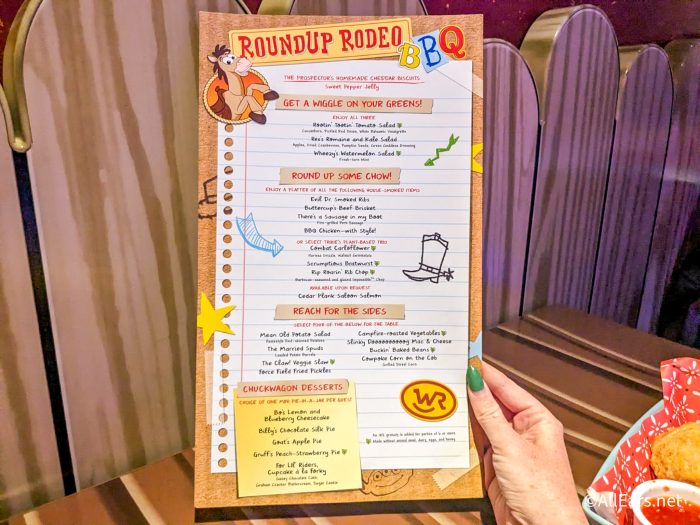 ROUNDUP RODEO BBQ
THE PROSPECTOR'S HOMEMADE CHEDDAR BISCUITS
Sweet Pepper Jelly
GET A WIGGLE ON YOUR GREENS!
ENJOY ALL THREE
Rootin' Tootin' Tomato Salad
Cucumbers, Pickled Red Onion, White Balsamic Vinaigrette
Rex's Romaine and Kale Salad
Apples, Dried Cranberries, Pumpkin Seeds, Green Goddess Dressing
Wheezy's Watermelon Salad
Fresh-torn Mint
ROUND UP SOME CHOW!
ENJOY A PLATTER OF ALL THE FOLLOWING HOUSE-SMOKED ITEMS
Evil Dr. Smoked Ribs
Buttercup's Beef Brisket
There's a Sausage in my Boot
Fire-grilled Pork Sausage
BBQ Chicken—with Style!
OR SELECT TRIXIE'S PLANT-BASED TRIO
Combat Carlflower
Harissa Drizzle, Walnut Gremolata
Scrumptious Bratwurst
Rip Roarin' Rib Chop
Barbecue-seasoned and glazed Impossible™ Chop
AVAILABLE UPON REQUEST
Cedar Plank Saloon Salmon
REACH FOR THE SIDES
SELECT FOUR OF THE BELOW FOR THE TABLE
Mean Old Potato Salad
The Married Spuds
Loaded Potato Barrels
The Claw! Veggie Slaw
Force Field Fried Pickles
Campfire-roasted Vegetables
Slinky Mac & Cheese
Buckin' Baked Beans
Cowpoke Corn on the Cob
Grilled Street Corn
CHUCKWAGON DESSERTS
CHOICE OF ONE MINI PIE-IN-A-JAR PER GUEST
Bo's Lemon and
Blueberry Cheesecake
Billy's Chocolate Silk Pie
Goat's Apple Pie
Gruff's Peach-Strawberry Pie
For Lil' Riders,
Cupcake à la Forky
Gooey Chocolate Cake,
Graham Cracker Buttercream, Sugar Cookie
WR
An 18% gratuity is added for parties of 6 or more.
Made without animal meat, dairy, eggs, and honey
©AllEars.net